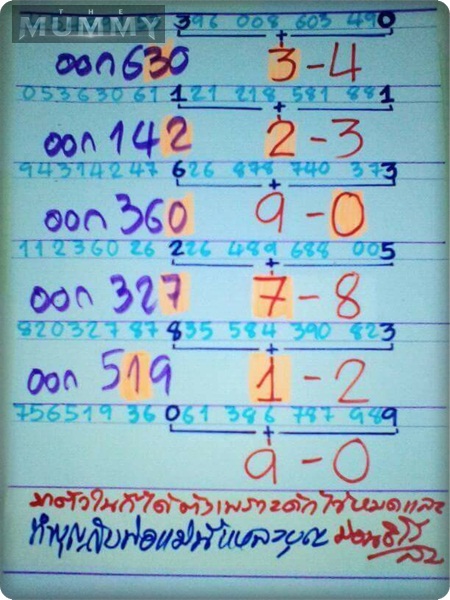 THE
MUMMY
396 008 603 490
+
ออก 630 3-4
053630 61 121 218 581 881
+
ออก 142 2-3
943142 47 626 878 740 373
+
ออก 360 9-0
112360 26 226 489 688 005
+
ออก 327 7-8
820327 87 835 584 390 823
+
ออก 519 1-2
756519 36 061 386 787 989
+
9-0